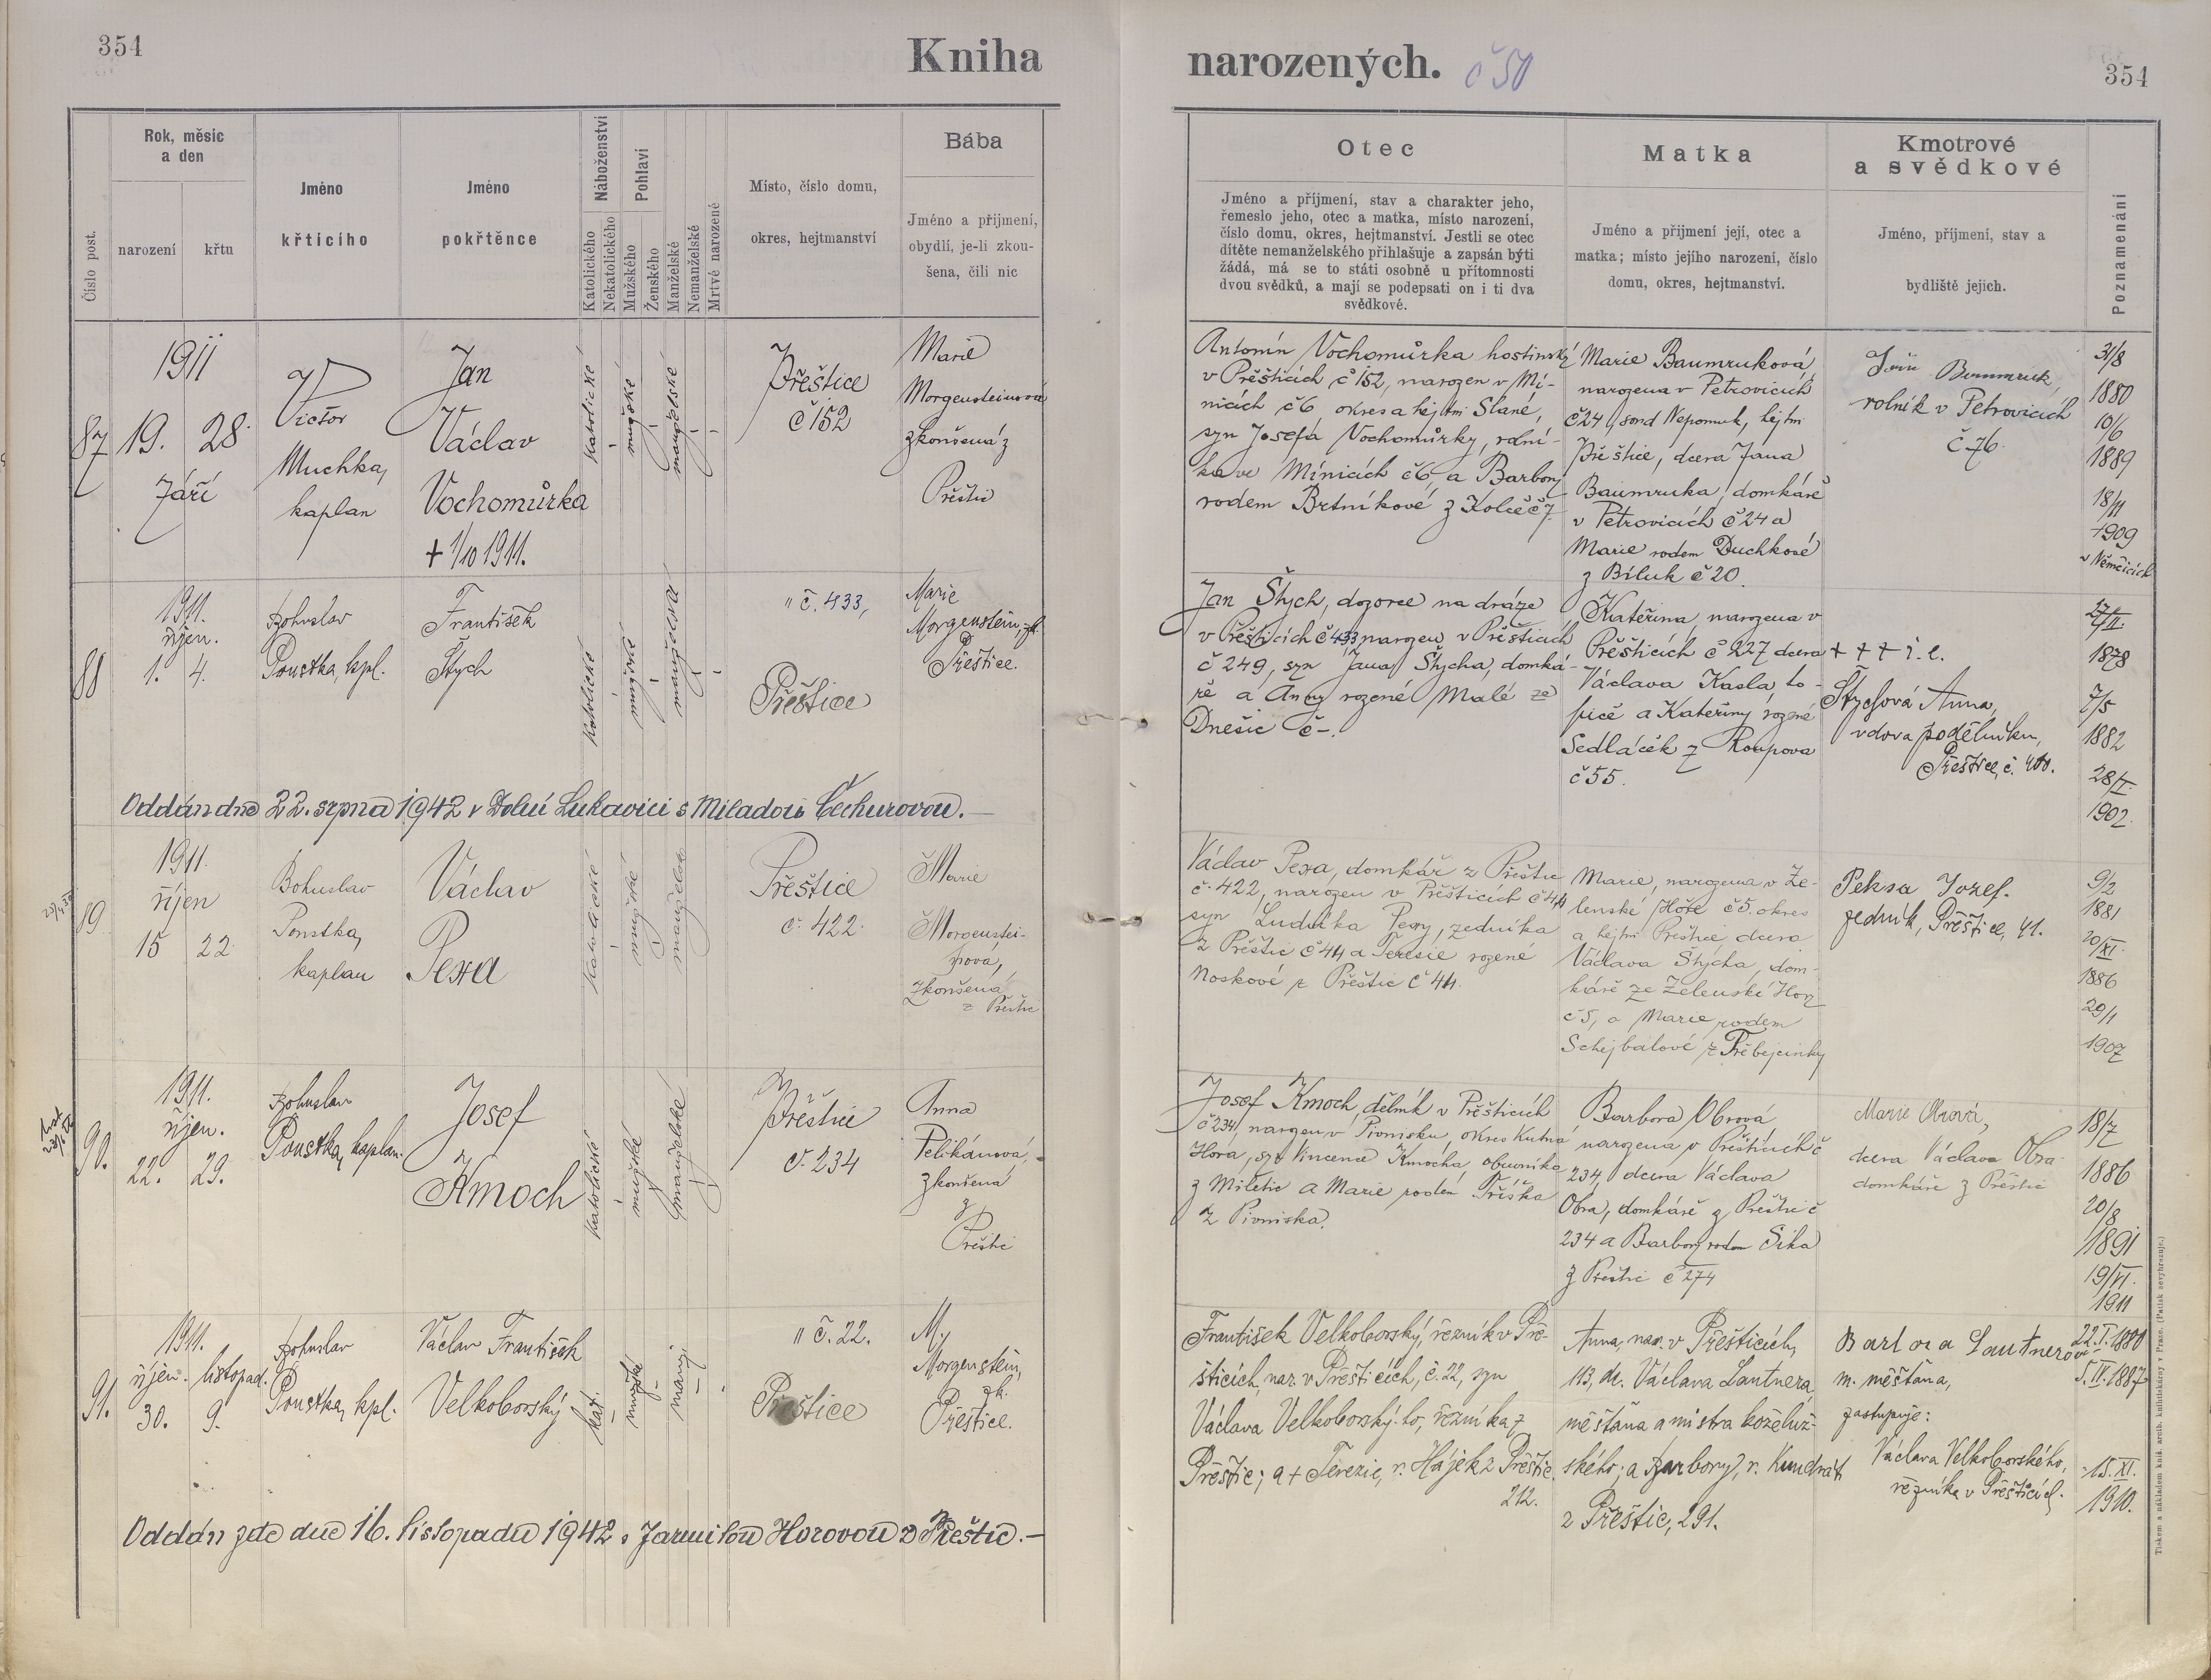 354
Kniha
narozených.
č 50
354
Číslo post.
Rok, měsíc
a den
narození
křtu
Jméno
křtícího
Jméno
pokřtěnce
Náboženství
Katolického
Nekatolického
Pohlaví
Mužského
Ženského
Manželské
Nemanželské
Mrtvě narozené
Místo, číslo domu,
okres, hejtmanství
Bába
Jméno a přijmení,
obydlí, je-li zkou-
šena, čili nic
Otec
Jméno a příjmení, stav a charakter jeho,
řemeslo jeho, otec a matka, místo narození,
číslo domu, okres, hejtmanství. Jestli se otec
dítěte nemanželského přihlašuje a zapsán býti
žádá, má se to státi osobně u přítomnosti
dvou svědků, a mají se podepsati on i ti dva
svědkové.
Matka
Jméno a přijmení její, otec a
matka; místo jejího narození, číslo
domu, okres, hejtmanství.
Kmotrové
a svědkové
Jméno, příjmení, stav a
bydliště jejich.
Poznamenání
87
1911
19. 28.
září
Victor
Muchka,
kaplan
Jan
Václav
Vochomůrka
+ 1/10 1911.
katolické
mužské
manželské
Přeštice
č 152
Marie
Morgensteinová
zkoušená z
Přeštic
Antonín Vochomůrka hostinský
v Přešticích č 152, narozen v Mí-
nicích č 6, okres a hejtm Slané,
syn Josefa Vochomůrky, rolní-
ka ve Mínicích č 6, a Barbory
rodem Brtníkové z Kolče č 7.
Marie Baumruková
narozena v Petrovicích
č 24, soud Nepomuk, hejtm
Přeštice, dcera Jana
Baumruka, domkáře
v Petrovicích č 24 a
Marie rodem Duchkové
z Biluk č 20.
Baumruk,
rolník v Petrovicích
č 76.
31/8
1880
10/6
1889
18/11
1909
v Němčicích
88
1911.
říjen.
1. 4.
Bohuslav
Poustka, kpl.
František
Štych
katolické
mužské
manželské
" č. 433,
Přeštice
Marie
Morgenstein, zk.
Přeštice.
Jan Štych, dozorce na dráze
v Přešticích č 433 narozen v Přešticích
č 249, syn Jana Štycha, domká-
ře a Anny rozené Malé ze
Dnešic č -.
Kateřina, narozena v
Přešticích č 227 dcera
Václava Kasla, to-
piče a Kateřiny rozené
Sedláček z Roupova
č 55.
+ + + i. e.
Štychová Anna,
vdova po dělníku,
Přeštice, č. 400.
27/II.
1878
7/5
1882
28/I.
1902.
Oddán dne 22. srpna 1942 v Dolní Lukavici s Miladou Čechurovou. —
89
1911.
říjen
15 22
Bohuslav
Poustka,
kaplan
Václav
Pexa
katolické
mužské
manželské
Přeštice
č. 422.
Marie
Morgenstei-
nova,
zkoušená
z Přeštic
Václav Pexa, domkář z Přeštic
č. 422, narozen v Přešticích č 44
syn Ludvíka Pexy, zedníka
z Přeštic č 44 a Terezie rozené
Noskové z Přeštic č 44.
Marie, narozena v Ze-
lenské Hoře č 5. okres
a hejtm Přeštice, dcera
Václava Štycha, dom-
káře ze Zelenské Hory
č 5, a Marie rodem
Schejbalové z Přebejcinky
Peksa Jozef.
zedník, Přeštice, 41.
9/2
1881
20/XI.
1886
29/1
1907
90.
1911.
říjen.
22. 29.
Bohuslav
Poustka, kaplan.
Josef
Kmoch
katolické
mužské
manželské
Přeštice
č. 234
Anna
Pelikánová,
zkoušená
z
Přeštic
Josef Kmoch, dělník v Přešticích
č 234, narozen v Pivnisku, okres Kutná
Hora, syn Vincence Kmocha, obuvníka
z Miletic a Marie rodem Tříška
z Pivniska.
Barbora Obrová,
narozena v Přešticích č
234, dcera Václava
Obra, domkáře z Přeštic č
234 a Barbory rodem Šika
z Přeštic č 274
Marie Obrová,
dcera Václava Obra
domkáře z Přeštic
18/7
1886
20/8
1891
19/VI.
1911
91.
1911.
říjen. listopad.
30. 9.
Bohuslav
Poustka, kpl.
Václav František
Velkoborský
kat.
mužské
manž.
" č. 22.
Přeštice
M.
Morgenstein,
zk.
Přeštice.
František Velkoborský, řezník v Pře-
šticích, nar. v Přešticích, č. 22, syn
Václava Velkoborského, řezníka z
Přeštic; a + Terezie, r. Hájek z Přeštic.
212.
Anna, nar. v Přešticích,
113, dc. Václava Lautnera,
měšťana a mistra koželuž-
ského; a Barbory, r. Kundrát
z Přeštic, 291.
Barbora Lautnerová
m. měšťana,
zastupuje:
Václava Velkoborského,
řezníka v Přešticích.
22. I. 1880
5. II. 1887
15. XI.
1910.
Oddán zde dne 16. listopadu 1942 s Jarmilou Horovou z Přeštic. —
Tiskem a nákladem knih. arcib. knihtiskárny v Praze. (Patisk se vyhrazuje.)